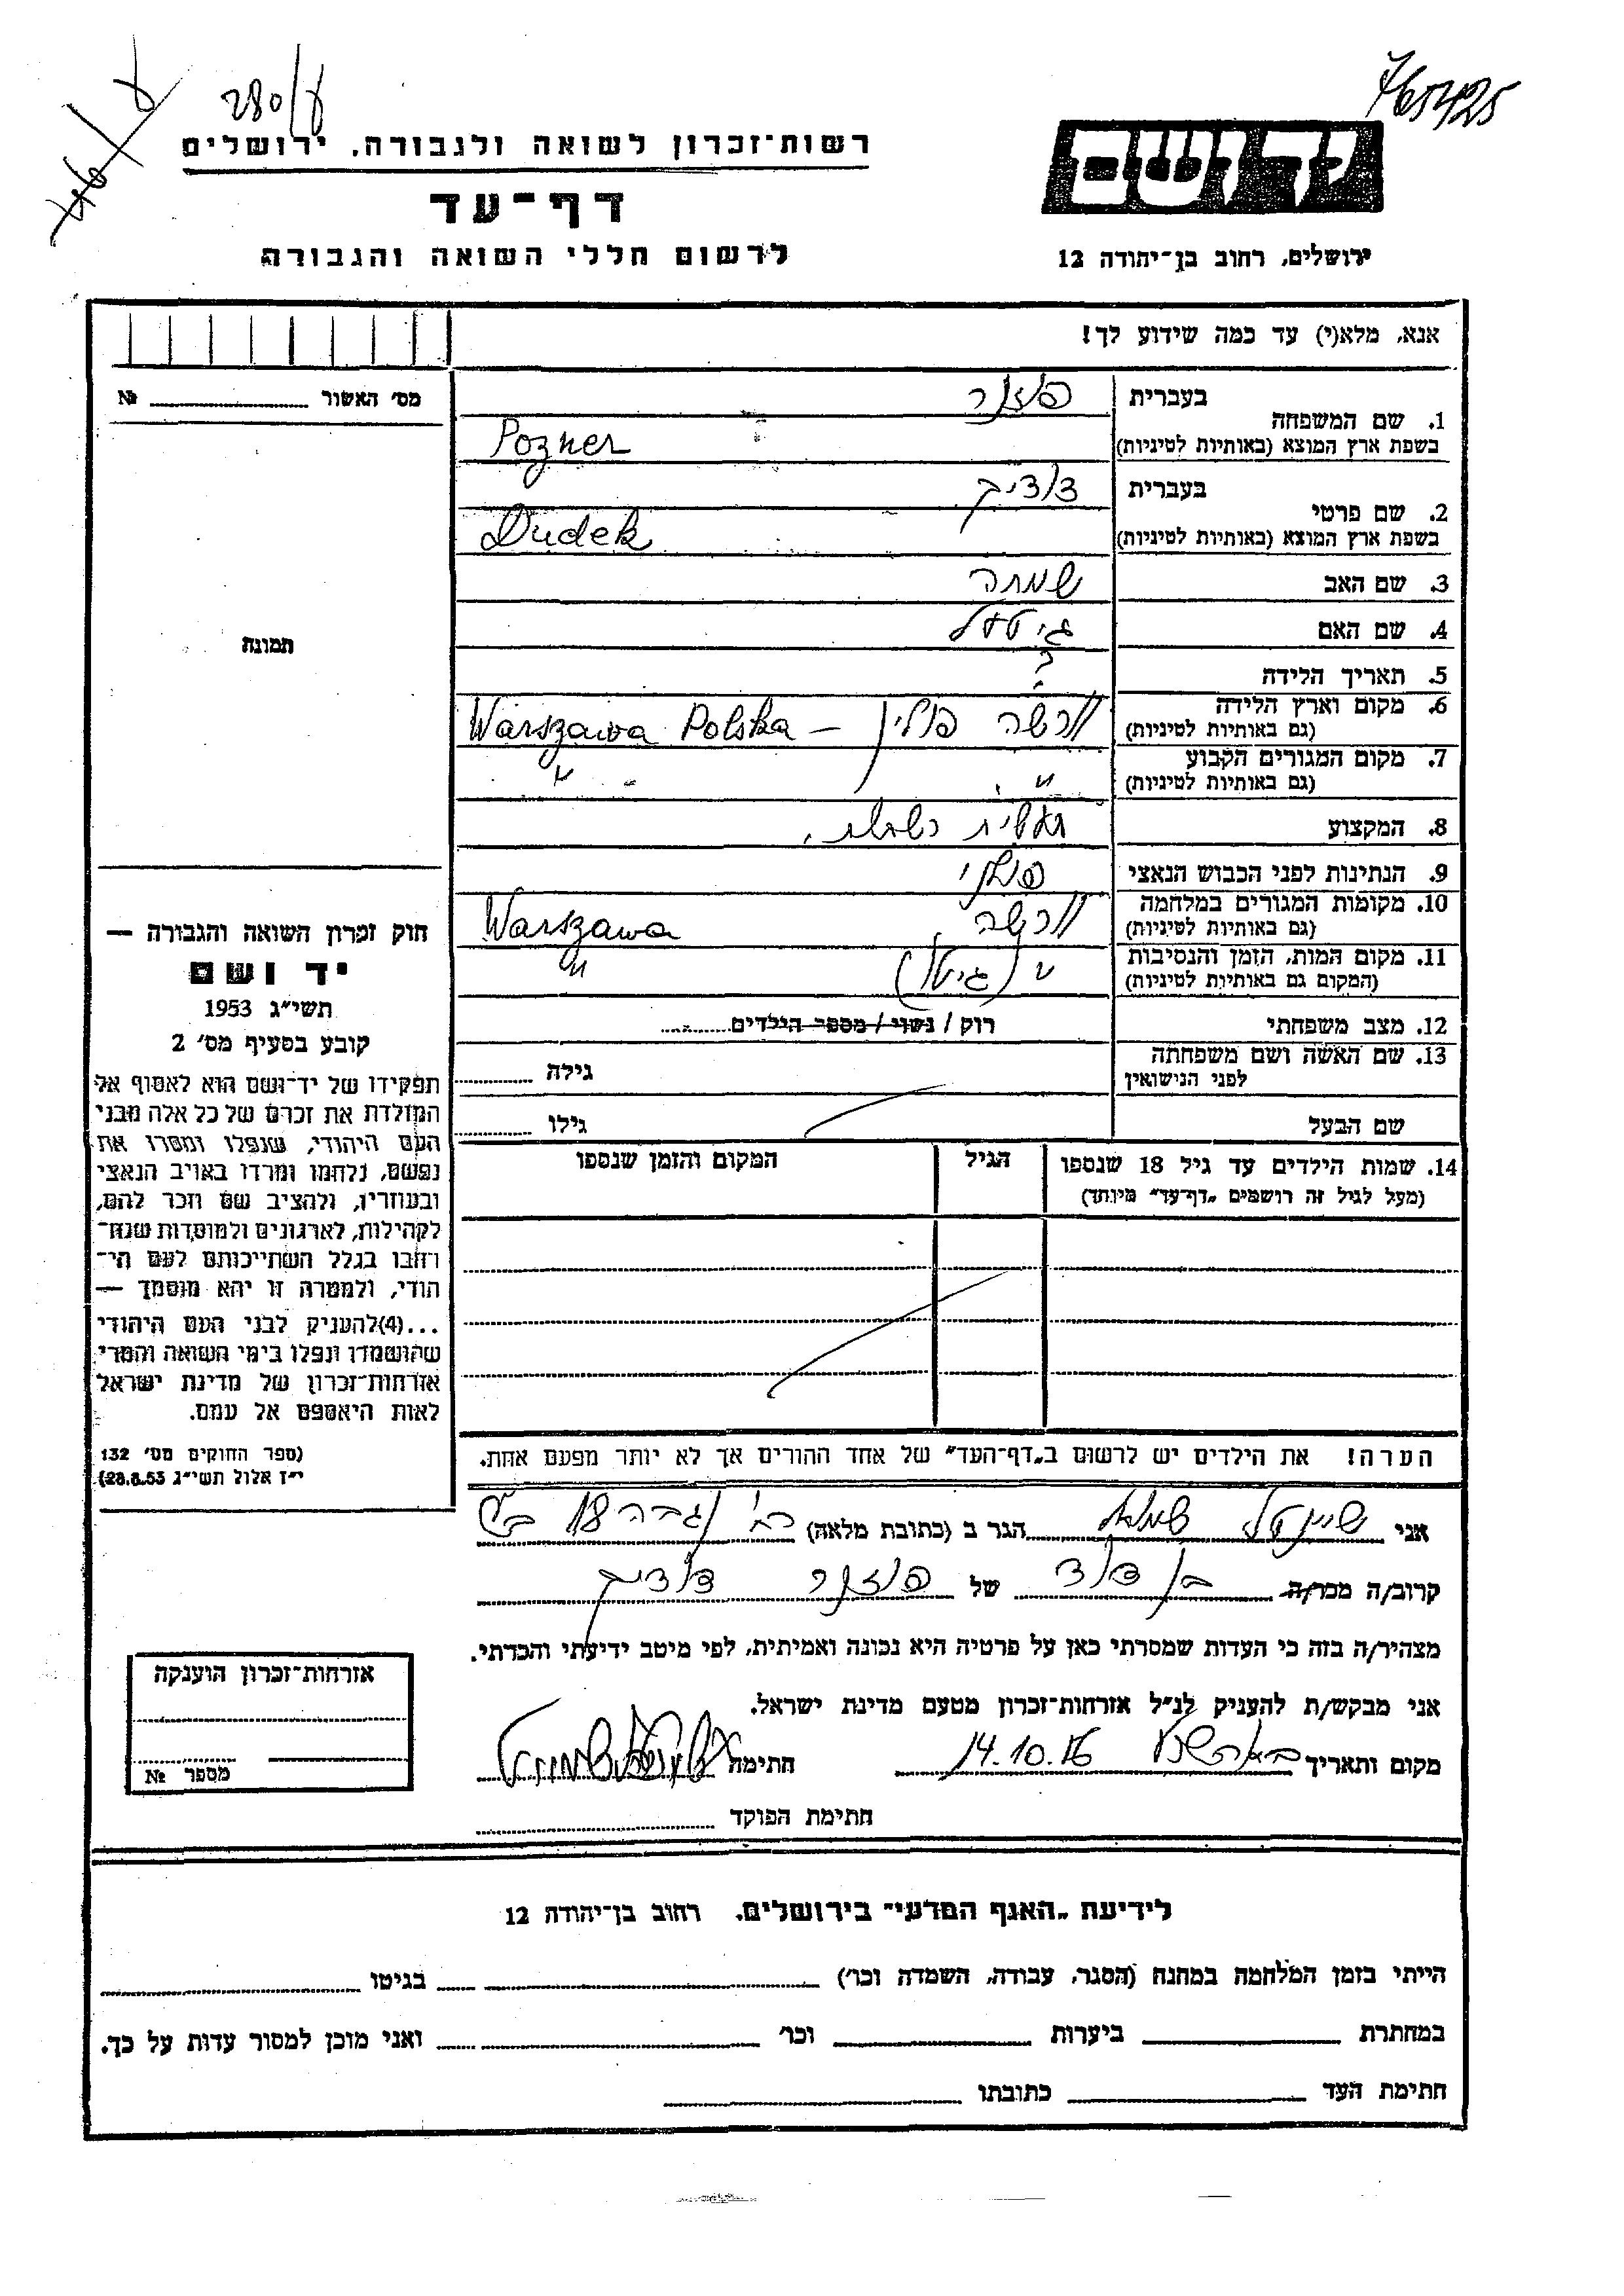 765425
280/ע
רשות־זכרון לשואה ולגבורה, ירושלים
יד ושם
דף־עד
לרשום חללי השואה והגבורה
ירושלים, רחוב בן־יהודה 12
אנא, מלא(י) עד כמה שידוע לך!
מס׳ האשור № ........
1. שם המשפחה
בעברית פוזנר
בשפת ארץ המוצא (באותיות לטיניות) Pozner
2. שם פרטי
בעברית דודיק
בשפת ארץ המוצא (באותיות לטיניות) Dudek
3. שם האב שמחה
4. שם האם גיטל
תמונה
5. תאריך הלידה ?
6. מקום וארץ הלידה (גם באותיות לטיניות) וורשה פולין – Warszawa Polska
7. מקום המגורים הקבוע (גם באותיות לטיניות) " " " "
8. המקצוע
9. הנתינות לפני הכבוש הנאצי פולני
10. מקומות המגורים במלחמה (גם באותיות לטיניות) וורשה Warszawa
11. מקום המות, הזמן והנסיבות (המקום גם באותיות לטיניות) " (גיטו) "
12. מצב משפחתי רוק / נשוי / מספר הילדים ........
13. שם האשה ושם משפחתה לפני הנישואין גילה ........
שם הבעל גילו ........
14. שמות הילדים עד גיל 18 שנספו (מעל לגיל זה רושמים „דף־עד״ מיוחד) הגיל המקום והזמן שנספו
הערה! את הילדים יש לרשום ב„דף־העד״ של אחד ההורים אך לא יותר מפעם אחת.
חוק זכרון השואה והגבורה —
יד ושם
תשי״ג 1953
קובע בסעיף מס׳ 2
תפקידו של יד־ושם הוא לאסוף אל
המולדת את זכרם של כל אלה מבני
העם היהודי, שנפלו ומסרו את
נפשם, נלחמו ומרדו באויב הנאצי
ובעוזריו, ולהציב שם וזכר להם,
לקהילות, לארגונים ולמוסדות שנח־
רבו בגלל השתייכותם לעם הי־
הודי, ולמטרה זו יהא מוסמך —
...(4)להעניק לבני העם היהודי
שהושמדו ונפלו בימי השואה והמרי
אזרחות־זכרון של מדינת ישראל
לאות היאספם אל עמם.
(ספר החוקים מס׳ 132
י״ז אלול תשי״ג 28.8.53)
אני שיינדל הגר ב (כתובת מלאה)
קרוב/ה מכר/ה בן דוד של פוזנר דודיק
מצהיר/ה בזה כי העדות שמסרתי כאן על פרטיה היא נכונה ואמיתית, לפי מיטב ידיעתי והכרתי.
אני מבקש/ת להעניק לנ״ל אזרחות־זכרון מטעם מדינת ישראל.
מקום ותאריך באר שבע 14.10.56 חתימה
חתימת הפוקד ........
אזרחות־זכרון הוענקה
מספר №
לידיעת „האגף המדעי״ בירושלים, רחוב בן־יהודה 12
הייתי בזמן המלחמה במחנה (הסגר, עבודה, השמדה וכו׳) ........ בגיטו ........
במחתרת ........ ביערות ........ וכו׳ ........ ואני מוכן למסור עדות על כך.
חתימת העד ........ כתובתו ........